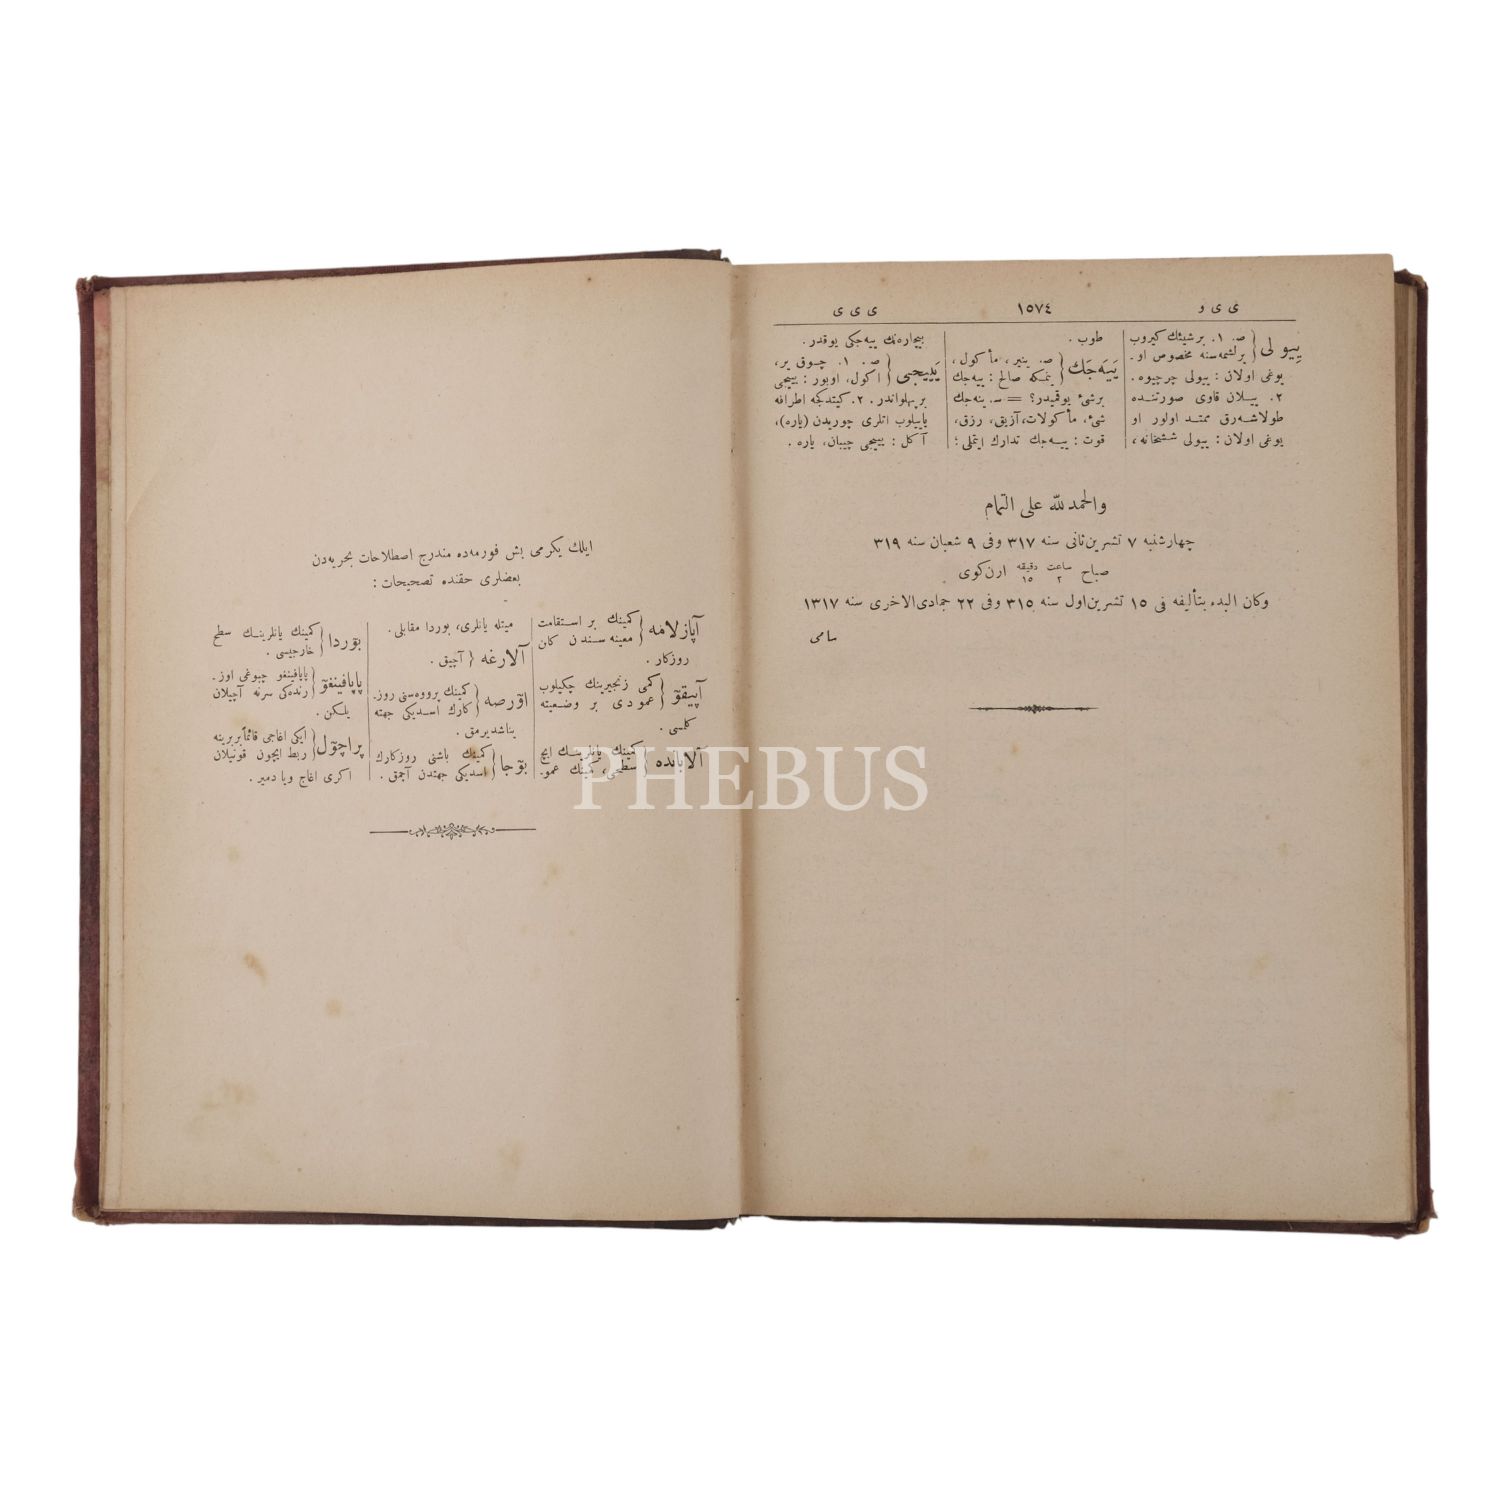 ی ی و
١٥٧٤
ی ی ی
ییولی { ص. ١. برشیئك كیروب
یرلشمه‌سنه مخصوص او.
یوغی اولان : ییولی چرچیوه.
٢. ییلان قاوی صورتنده
طولاشه‌رق ممتد اولور او
یوغی اولان : ییولی ششخانه،
طوب .
ییه‌جك { ص. ینیر، مأكول،
ینمكه صالح : ییه‌جك
برشیٔ یوقمیدر؟ = س. ینه‌جك
شیٔ، مأكولات، آزیق، رزق،
قوت : ییه‌جك تدارك ایتملی؛
بیچاره‌نك ییه‌جكی یوقدر.
یییجی { ص. ١. چوق یر،
اكول، اوبور : یییجی
برپهلواندر. ٢. كیتدكجه اطرافه
یاییلوب اتلری چوریدن (یاره)،
آكل : یییجی چیبان، یاره .
والحمدلله علی التمام
چهارشنبه ٧ تشرین‌ثانی سنه ٣١٧ وفی ٩ شعبان سنه ٣١٩
صباح ساعت ٢ دقیقه ١٥ ارن‌كوی
وكان البدء بتألیفه فی ١٥ تشرین‌اول سنه ٣١٥ وفی ٢٢ جمادی‌الاخری سنه ١٣١٧
سامی
ایلك یكرمی بش فورمه‌ده مندرج اصطلاحات بحریه‌دن
بعضلری حقنده تصحیحات :
آپازلامه { كمینك بر استقامت
معینه سندن كان
روزكار .
آپیقو { كمی زنجیرینك چكیلوب
عمودی بر وضعیته
كلمسی .
آلابانده { كمینك یانلرینك ایچ
سطحی، كمینك عمو.
میتله یانلری، بوردا مقابلی.
آلارغه { آچیق .
اورصه { كمینك پرووه‌سنی روز.
كارك اسدیكی جهته
یناشدیرمق .
بوجا { كمینك باشنی روزكارك
اسدیكی جهتدن آچمق .
بوردا { كمینك یانلرینك سطح
خارجیسی .
پاپافینغو { پاپافینغو چبوغی اوز.
رنده‌كی سرنه آچیلان
یلكن .
پراچول { ایكی اغاجی قائماً بربرینه
ربط ایچون قونیلان
اكری اغاج ویا دمیر .
PHEBUS